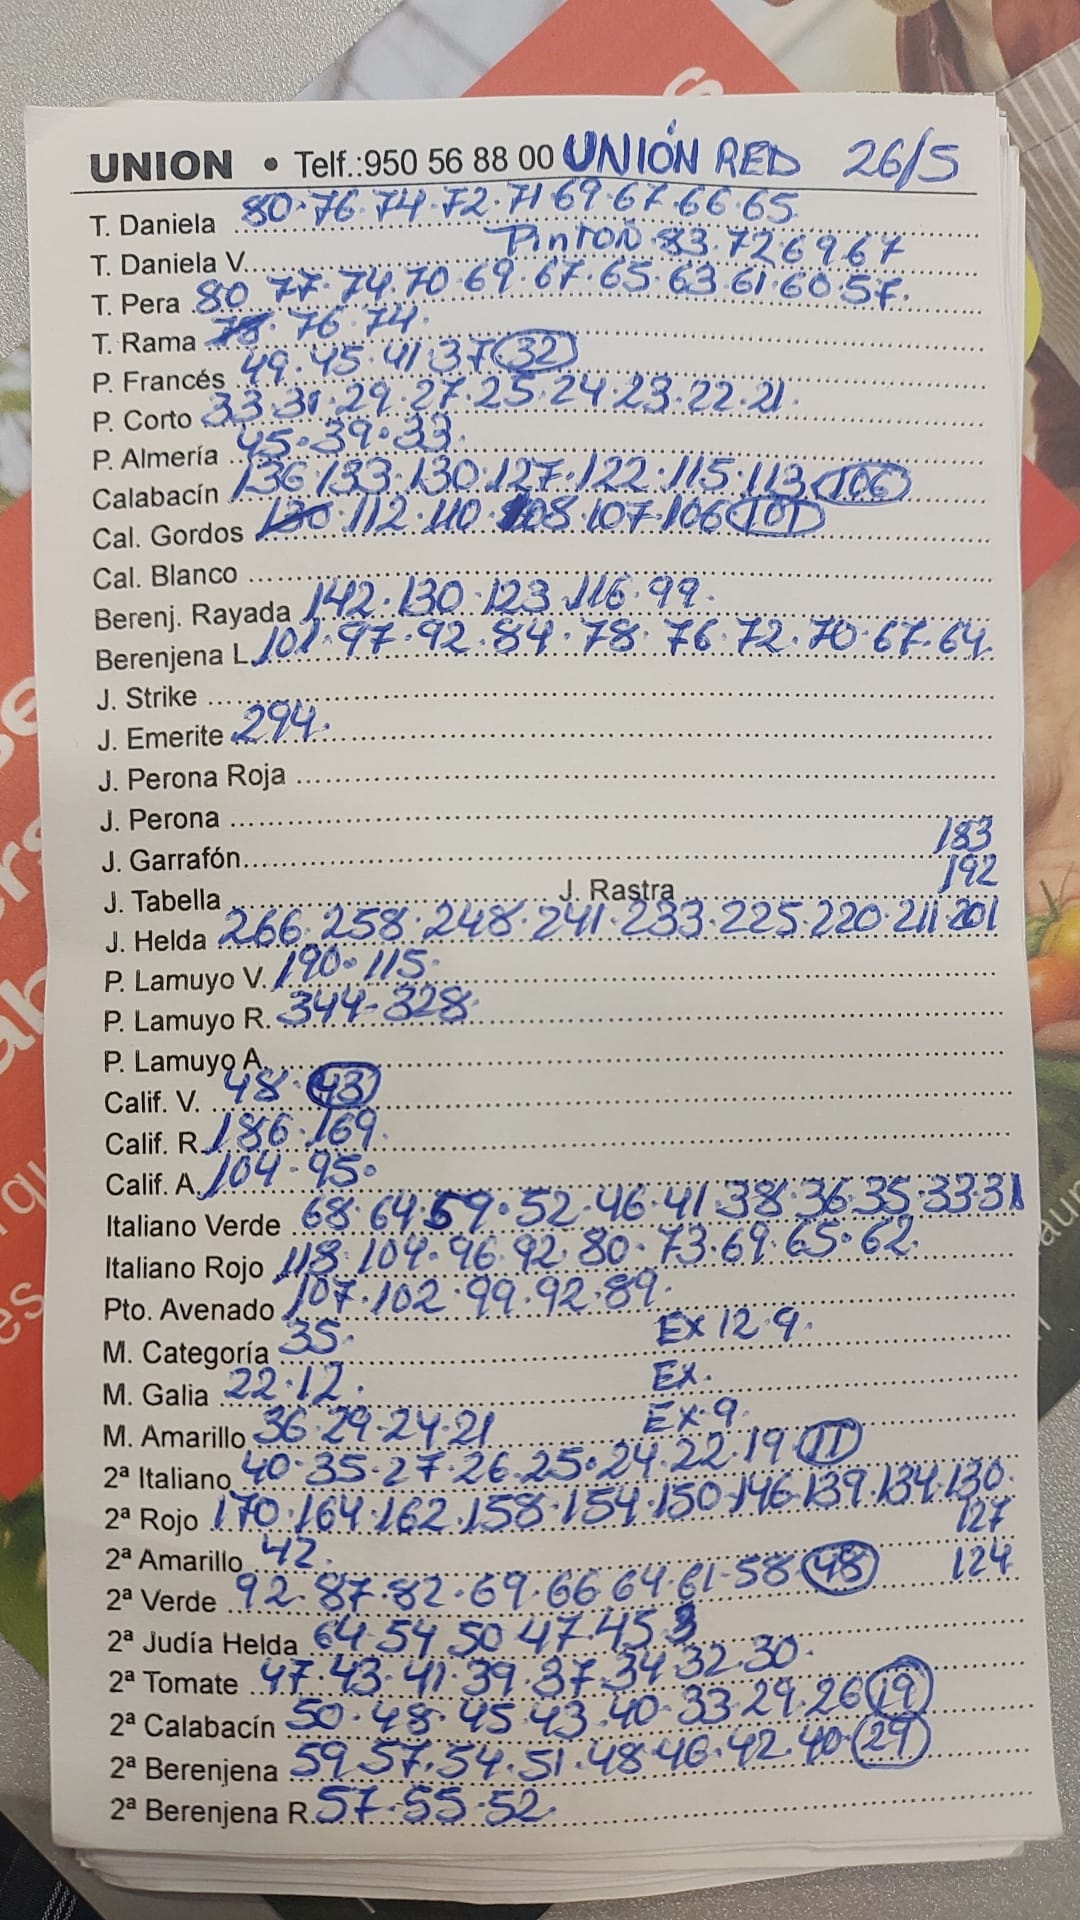 UNION • Telf.:950 56 88 00 UNIÓN RED 26/5
T. Daniela 80·76·74·72·71·69·67·66·65
T. Daniela V. PINTON 83·72 69 67
T. Pera 80 77·74·70·69·67·65·63·61·60·57.
T. Rama 78·76·74.
P. Francés 49·45·41·37 32
P. Corto 33·31·29·27·25·24·23·22·21.
P. Almería 45·39·33.
Calabacín 136·133·130·127·122·115·113 106
Cal. Gordos 130·112·110·108·107·106 101
Cal. Blanco
Berenj. Rayada 142·130·123·116·99.
Berenjena L. 101·97·92·84·78·76·72·70·67·64.
J. Strike
J. Emerite 294.
J. Perona Roja
J. Perona
J. Garrafón 183
J. Tabella J. Rastra 192
J. Helda 266·258·248·241·233·225·220·211·201
P. Lamuyo V. 190·115·
P. Lamuyo R. 344-328·
P. Lamuyo A.
Calif. V. 48·43
Calif. R. 186·169.
Calif. A. 104·95·
Italiano Verde 68·64·59·52·46·41·38·36·35·33·31
Italiano Rojo 118·104·96·92·80·73·69·65·62.
Pto. Avenado 107·102·99·92·89.
M. Categoría 35· EX 12·9.
M. Galia 22·12. EX.
M. Amarillo 36·29·24·21 EX·9.
2ª Italiano 40·35·27·26·25·24·22·19 11
2ª Rojo 170·164·162·158·154·150·146·139·134·130.
127
2ª Amarillo 42. 124
2ª Verde 92·87·82·69·66·64·61·58 48
2ª Judía Helda 64·54 50 47·45
2ª Tomate 47·43·41·39·37·34·32·30·
2ª Calabacín 50·48·45·43·40·33·29·26 19
2ª Berenjena 59·57·54·51·48·46·42·40·29
2ª Berenjena R. 57·55·52